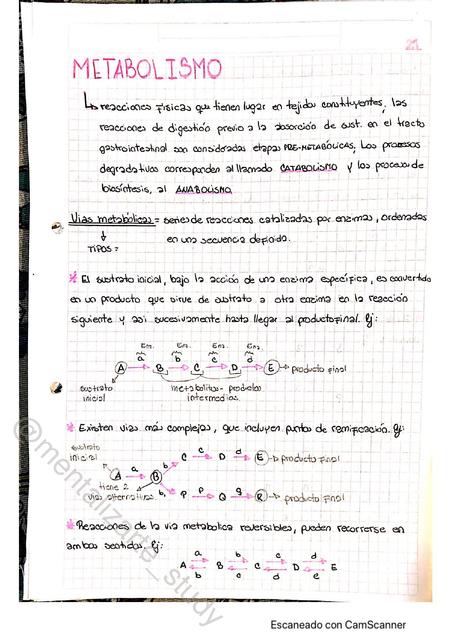 21
METABOLISMO
↳ reacciones físicas que tienen lugar en tejidos constituyentes, las
reacciones de digestión previo a la absorción de sust. en el tracto
gastrointestinal son consideradas etapas PRE-METABÓLICAS, Los procesos
degradativos corresponden al llamado CATABOLISMO y los procesos de
biosíntesis, al ANABOLISMO.
Vías metabólicas = series de reacciones catalizadas por enzimas, ordenadas
↓ en una secuencia definida.
TIPOS =
* El sustrato inicial, bajo la acción de una enzima específica, es convertido
en un producto que sirve de sustrato a otra enzima en la reacción
siguiente y así sucesivamente hasta llegar al producto final. Ej:
Enz. Enz. Enz. Enz.
a b c d
A → B → C → D → E → producto final
sustrato inicial
metabolitos - productos
intermedios.
* Existen vías más complejas, que incluyen puntos de ramificación. Ej:
sustrato
inicial
b C c D d E → producto final
A a B
tiene 2
vías alternativas
b, P p Q q R → producto final
* Reacciones de la vía metabolica reversibles, pueden recorrerse en
ambos sentidos. Ej:
a b c d
A ⇄ B ⇄ C ⇄ D ⇄ E
b c d e
@mentalizarte_study
Escaneado con CamScanner